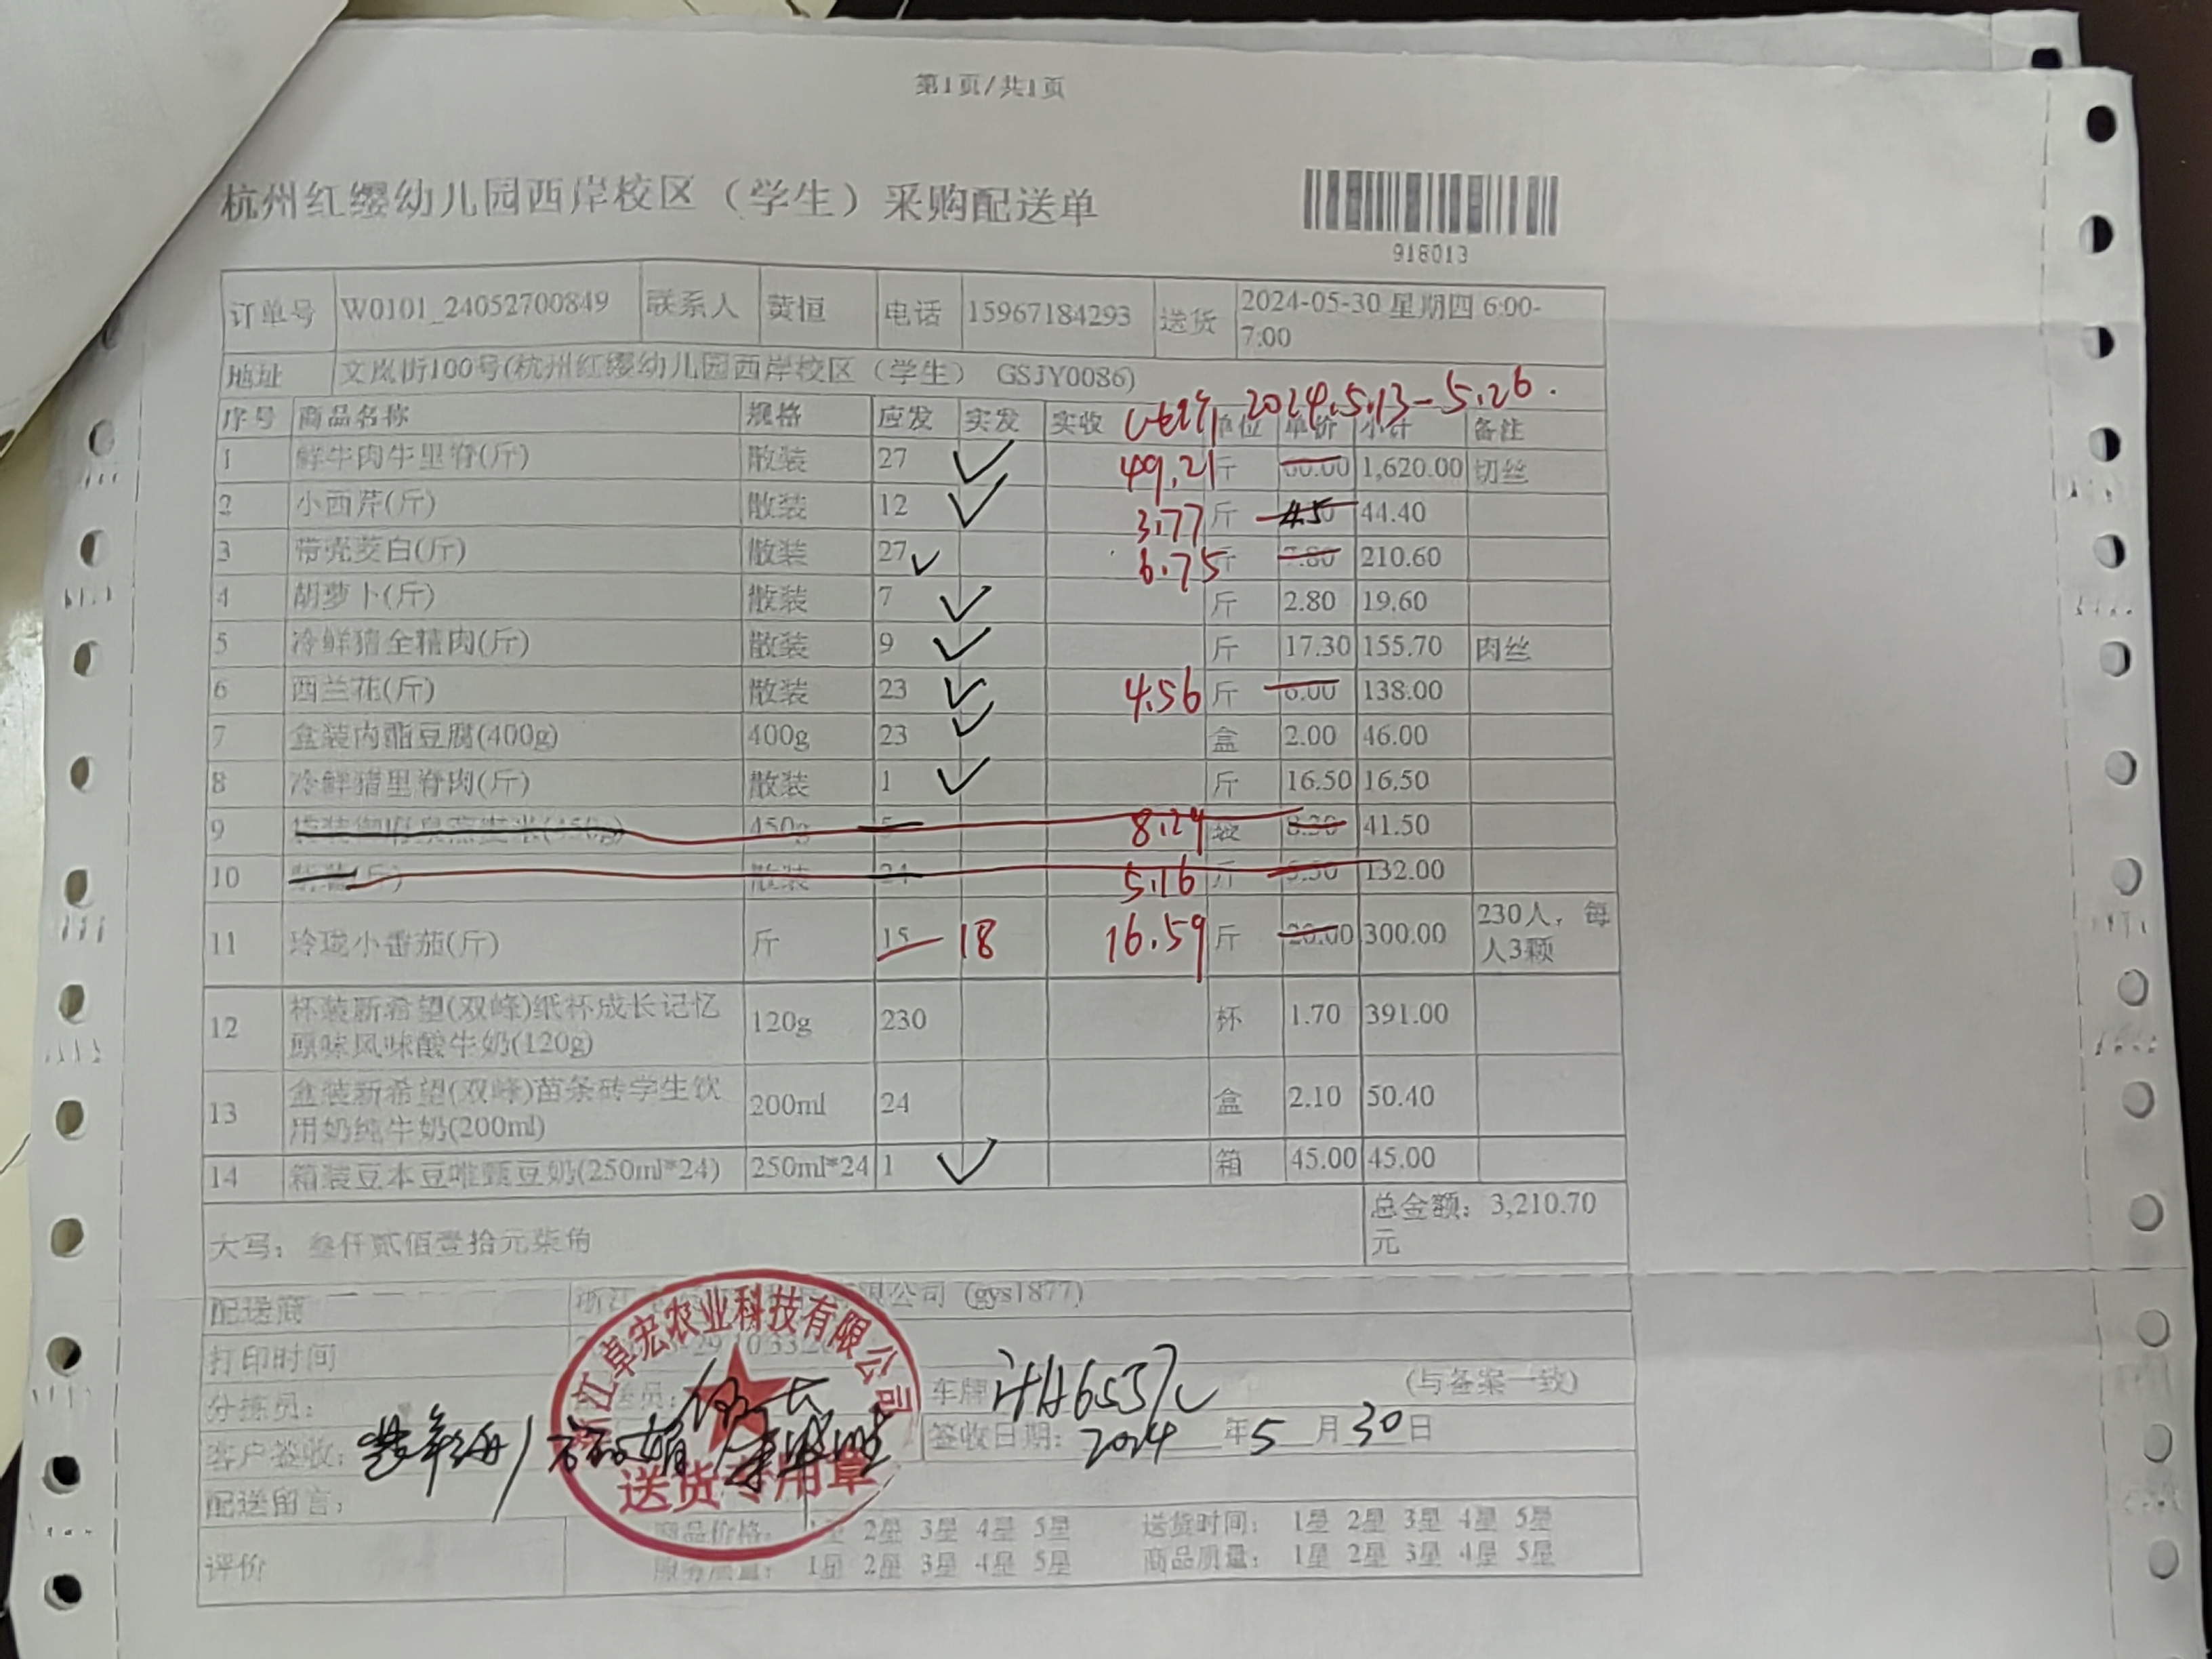 第1页/共1页
杭州红缨幼儿园西岸校区（学生）采购配送单
918013
订单号 W0101_24052700849 联系人 黄恒 电话 15967184293 送货 2024-05-30 星期四 6:00-
7:00
地址 文岚街100号(杭州红缨幼儿园西岸校区（学生） GSJY0086)
2024.5.13-5.26.
序号 商品名称 规格 应发 实发 实收 单位 单价 小计 备注
1 鲜牛肉牛里脊(斤) 散装 27 49.21 斤 60.00 1,620.00 切丝
2 小西芹(斤) 散装 12 3.77 斤 4.50 44.40
3 带壳茭白(斤) 散装 27 6.75 斤 7.80 210.60
4 胡萝卜(斤) 散装 7 斤 2.80 19.60
5 冷鲜猪全精肉(斤) 散装 9 斤 17.30 155.70 肉丝
6 西兰花(斤) 散装 23 4.56 斤 6.00 138.00
7 盒装内酯豆腐(400g) 400g 23 盒 2.00 46.00
8 冷鲜猪里脊肉(斤) 散装 1 斤 16.50 16.50
9 (450g) 450g 5 8.29 8.30 41.50
10 (斤) 散装 24 5.16 斤 5.50 132.00
11 玲珑小番茄(斤) 斤 15 18 16.59 斤 20.00 300.00 230人，每
人3颗
12 杯装新希望(双峰)纸杯成长记忆
原味风味酸牛奶(120g) 120g 230 杯 1.70 391.00
13 盒装新希望(双峰)苗条砖学生饮
用奶纯牛奶(200ml) 200ml 24 盒 2.10 50.40
14 箱装豆本豆唯甄豆奶(250ml*24) 250ml*24 1 箱 45.00 45.00
大写：叁仟贰佰壹拾元柒角 总金额：3,210.70
元
配送商 浙江 限公司 (gys1877)
浙江卓宏农业科技有限公司
打印时间 29 10:33:2
分拣员： 送员： 车牌 (与备案一致)
客户签收： 签收日期：2024 年5 月30日
送货专用章
配送留言：
评价 商品价格： 1星 2星 3星 4星 5星 送货时间： 1星 2星 3星 4星 5星
服务质量： 1星 2星 3星 4星 5星 商品质量： 1星 2星 3星 4星 5星